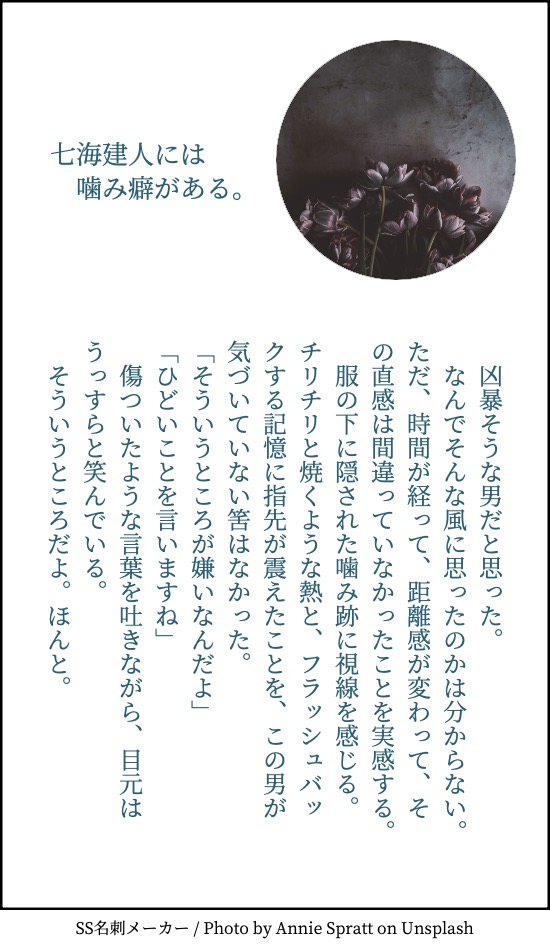 七海建人には
噛み癖がある。
凶暴そうな男だと思った。
なんでそんな風に思ったのかは分からない。
ただ、時間が経って、距離感が変わって、そ
の直感は間違っていなかったことを実感する。
服の下に隠された噛み跡に視線を感じる。
チリチリと焼くような熱と、フラッシュバッ
クする記憶に指先が震えたことを、この男が
気づいていない筈はなかった。
「そういうところが嫌いなんだよ」
「ひどいことを言いますね」
傷ついたような言葉を吐きながら、目元は
うっすらと笑んでいる。
そういうところだよ。ほんと。
SS名刺メーカー / Photo by Annie Spratt on Unsplash